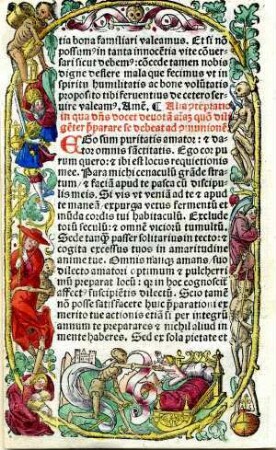 tia bona familiari valeamus. Et si nō
possum⁹ in tanta innocētia vite cōuer-
sari sicut debem⁹: cōcede tamen nobis
digne deflere mala que fecimus vt in
spiritu humilitatis ac bone volūtatis
proposito tibi feruentius de cetero serui-
re valeam⁹. Amē.
in qua dn̄s docet deuotā aīaȝ quō dili-
gēter p̄parare se debeat ad cōmunionē.
EGo sum puritatis amator: ⁊ da-
tor omnis sācitatis. Ego cor pu-
rum quero: ⁊ ibi est locus requietionis
mee. Para michi cenaculū grāde stra-
tum / ⁊ faciā apud te pasca cū discipu-
lis meis. Si vis vt veniā ad te ⁊ apud
te manea: expurga vetus fermentū et
mūda cordis tui habitaculū. Exclude
totū seculū: ⁊ omnē viciorū tumultū.
Sede tanq̄ passer solitarius in tecto: ⁊
cogita excessus tuos in amaritudine
anime tue. Omnis nanq̄ amans, suo
dilecto amatori optimum ⁊ pulcherri-
mū preparat locū: q̄ in hoc cognoscit̄
affect⁹ suscipiētis dilectū. Scito tamē
nō posse satisfacere huic p̄parationi ex
merito tue actionis etiā si per integrū
annum te preparares ⁊ nichil aliud in
mente haberes. Sed ex sola pietate et